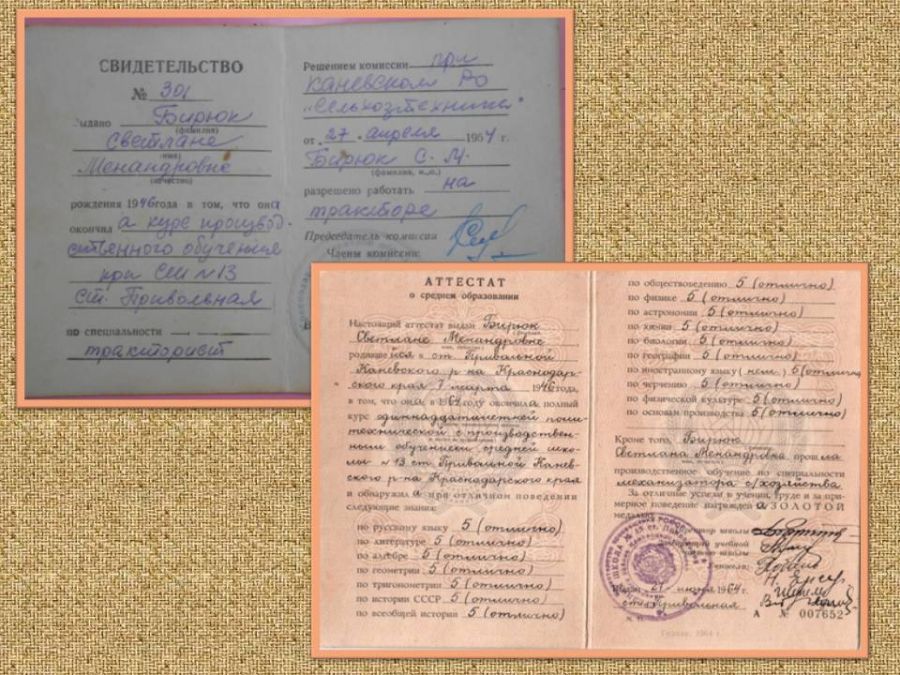 СВИДЕТЕЛЬСТВО
№ 301
Выдано Бирюк
(фамилия)
Светлане
(имя)
Менандровне
(отчество)
рождения 1946 года в том, что она
окончила а курс производ-
ственного обучения
при СШ N 13
ст. Привольная
по специальности
тракторист
Решением комиссии при
Каневском РО
"Сельхозтехника"
от " 27 " апреля 1964 г.
Бирюк С. М.
(фамилия, и., о.)
разрешено работать на
тракторе
Председатель комиссии
Члены комиссии:
АТТЕСТАТ
о среднем образовании
Настоящий аттестат выдан Бирюк
Светлане Менандровне
родившейся в ст. Привольной
Каневского р-на Краснодар-
ского края 7 марта 1946 года,
в том, что она в 1964 году окончила полный
курс одиннадцатилетней поли-
технической с производствен-
ным обучением средней шко-
лы N 13 ст. Привольной Канев-
ского р-на Краснодарского края
и обнаружила при отличном поведении
следующие знания:
по русскому языку 5 (отлично)
по литературе 5 (отлично)
по алгебре 5 (отлично)
по геометрии 5 (отлично)
по тригонометрии 5 (отлично)
по истории СССР 5 (отлично)
по всеобщей истории 5 (отлично)
по обществоведению 5 (отлично)
по физике 5 (отлично)
по астрономии 5 (отлично)
по химии 5 (отлично)
по биологии 5 (отлично)
по географии 5 (отлично)
по иностранному языку (нем.) 5 (отлично)
по черчению 5 (отлично)
по физической культуре 5 (отлично)
по основам производства 5 (отлично)
Кроме того, Бирюк
Светлана Менандровна прошла
производственное обучение по специальности
механизатора с/хозяйства
За отличные успехи в учении, труде и за при-
мерное поведение награжден а ЗОЛОТОЙ
медалью
директор школы
учебной
21 июня 1964 г.
ст. Привольная
А № 007652
Гознак. 1964 г.